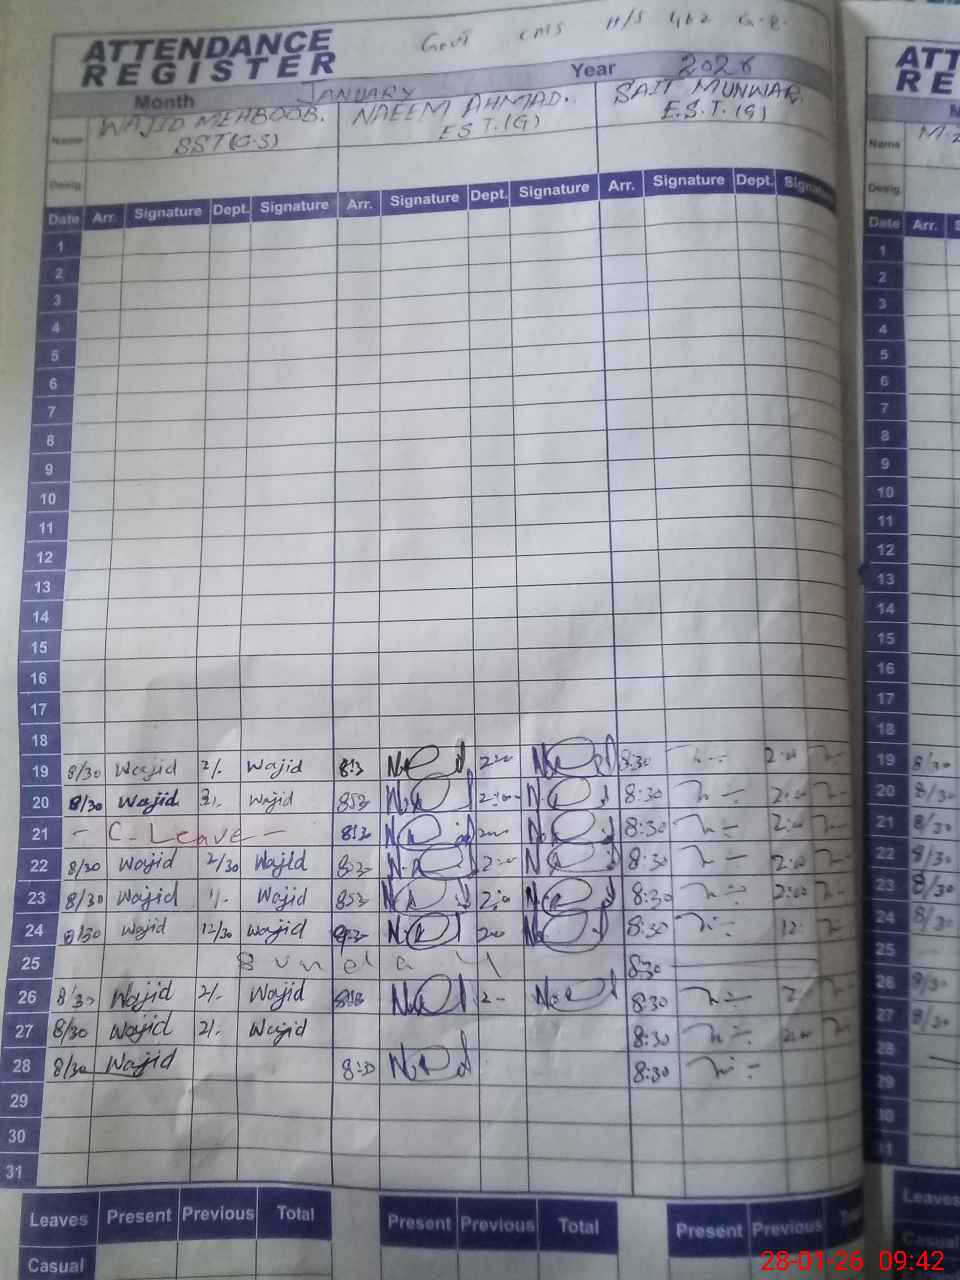 Govt CMS H/S 462 G.B.
ATTENDANCE
REGISTER
Month JANUARY Year 2026
Name WAJID MEHBOOB. NAEEM AHMAD. SAIF MUNWAR
SST(G.S) E S T.(G) E.S.T.(G)
Desig.
Date Arr. Signature Dept. Signature Arr. Signature Dept. Signature Arr. Signature Dept. Signature
1
2
3
4
5
6
7
8
9
10
11
12
13
14
15
16
17
18
19 8/30 Wajid 2/. Wajid 2:00 8:30 2:00
20 8/30 Wajid 2/. Wajid 2:00 8:30 2:00
21 - C. Leave - 8:30 2:00
22 8/30 Wajid 2/30 Wajid 2:00 8:30 2:00
23 8/30 Wajid 1/- Wajid 2:0 8:30 2:00
24 8/30 Wajid 12/30 Wajid 8:30 12:
25 Sunday 830
26 8/30 Wajid 2/. Wajid 2- 8:30 2
27 8/30 Wajid 2/. Wajid 8:30 2:00
28 8/30 Wajid 8:30 8:30
29
30
31
Leaves Present Previous Total Present Previous Total Present Previous Total
Casual
ATT
RE
Name
Desig.
Date Arr.
1
2
3
4
5
6
7
8
9
10
11
12
13
14
15
16
17
18
19 8/30
20 8/30
21 8/30
22 8/30
23 8/30
24 8/30
25
26 8/30
27 8/30
28
29
30
31
Leaves
Casual
28-01-26 09:42